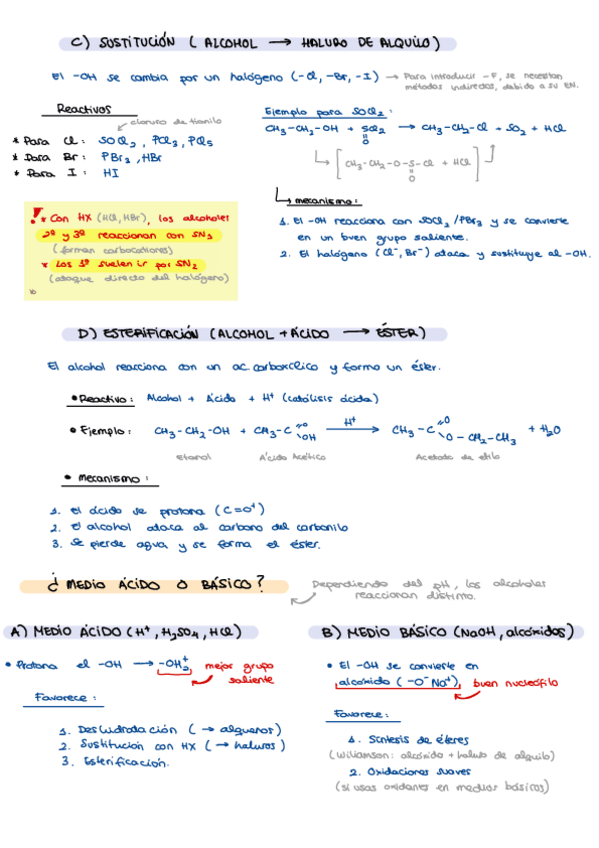 C) SUSTITUCIÓN ( ALCOHOL → HALURO DE ALQUILO )
El -OH se cambia por un halógeno (-Cl, -Br, -I) → Para introducir -F, se necesitan
métodos indirectos, debido a su EN.
Reactivos
cloruro de tionilo
* Para Cl: SOCl2, PCl3, PCl5
* Para Br: PBr3, HBr
* Para I: HI
Ejemplo para SOCl2:
CH3-CH2-OH + SCl2 → CH3-CH2-Cl + SO2 + HCl
O
[CH3-CH2-O-S-Cl + HCl]
O
! * Con HX (HCl, HBr), los alcoholes
2º y 3º reaccionan con SN1
(forman carbocationes)
* Los 1º suelen ir por SN2
(ataque directo del halógeno)
mecanismo:
1. El -OH reacciona con SOCl2/PBr3 y se convierte
en un buen grupo saliente.
2. El halógeno (Cl-, Br-) ataca y sustituye al -OH.
D) ESTERIFICACIÓN (ALCOHOL + ÁCIDO → ÉSTER)
El alcohol reacciona con un ac. carboxílico y forma un éster.
• Reactivo: Alcohol + Ácido + H+ (catálisis ácida)
• Ejemplo: CH3-CH2-OH + CH3-C=O\OH H+→ CH3-C=O\O-CH2-CH3 + H2O
Etanol Ácido Acético Acetato de etilo
• Mecanismo:
1. El ácido se protona (C=O+)
2. El alcohol ataca al carbono del carbonilo
3. Se pierde agua y se forma el éster.
¿MEDIO ÁCIDO O BÁSICO?
Dependiendo del pH, los alcoholes
reaccionan distinto.
A) MEDIO ÁCIDO (H+, H2SO4, HCl)
• Protona el -OH → -OH2+ mejor grupo
saliente
Favorece:
1. Deshidratación (→ alquenos)
2. Sustitución con HX (→ haluros)
3. Esterificación.
B) MEDIO BÁSICO (NaOH, alcóxidos)
• El -OH se convierte en
alcóxido (-O-Na+), buen nucleófilo
Favorece:
1. Síntesis de éteres
(Williamson: alcóxido + haluro de alquilo)
2. Oxidaciones suaves
(si usas oxidantes en medios básicos)